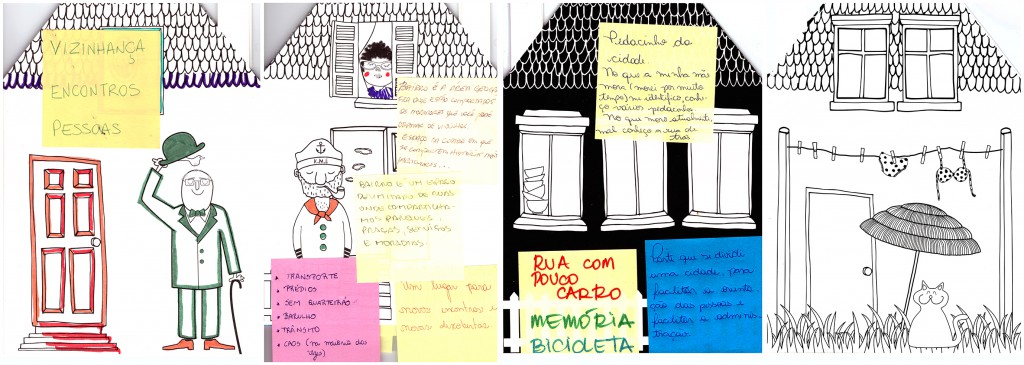 VIZINHANÇA
ENCONTROS
PESSOAS
BAIRRO É A ÁREA GEOGRÁ
FICA QUE ESTÃO CONECTADOS
AS MORADIAS QUE VOCÊ PODE
CHAMAR DE VIZINHO.
ESPAÇO DA CIDADE EM QUE
R.M.S
BAIRRO É UM VERSO
DELIMITADO DE RUAS
ONDE COMPARTILHA-
MOS PADARIAS,
PRAÇAS, SERVIÇOS
E MORADIAS.
• TRANSPORTE
• PRÉDIOS
• SEM QUARTEIRÃO
• BARULHO
• TRÂNSITO
• CAOS (na maioria das
vezes)
Um lugar para
novos encontros e
novas descobertas
Pedacinho da
cidade.
No que a minha mãe
mora (morei por muito
tempo) me identifico, conhe-
ço vários pedacinhos.
No que moro atualmente,
mal conheço a rua de
trás
RUA COM
POUCO
CARRO
MEMÓRIA
BICICLETA
Parte que se divide
uma cidade, para
facilitar a orienta-
ção das pessoas e
facilitar a adminis-
tração.